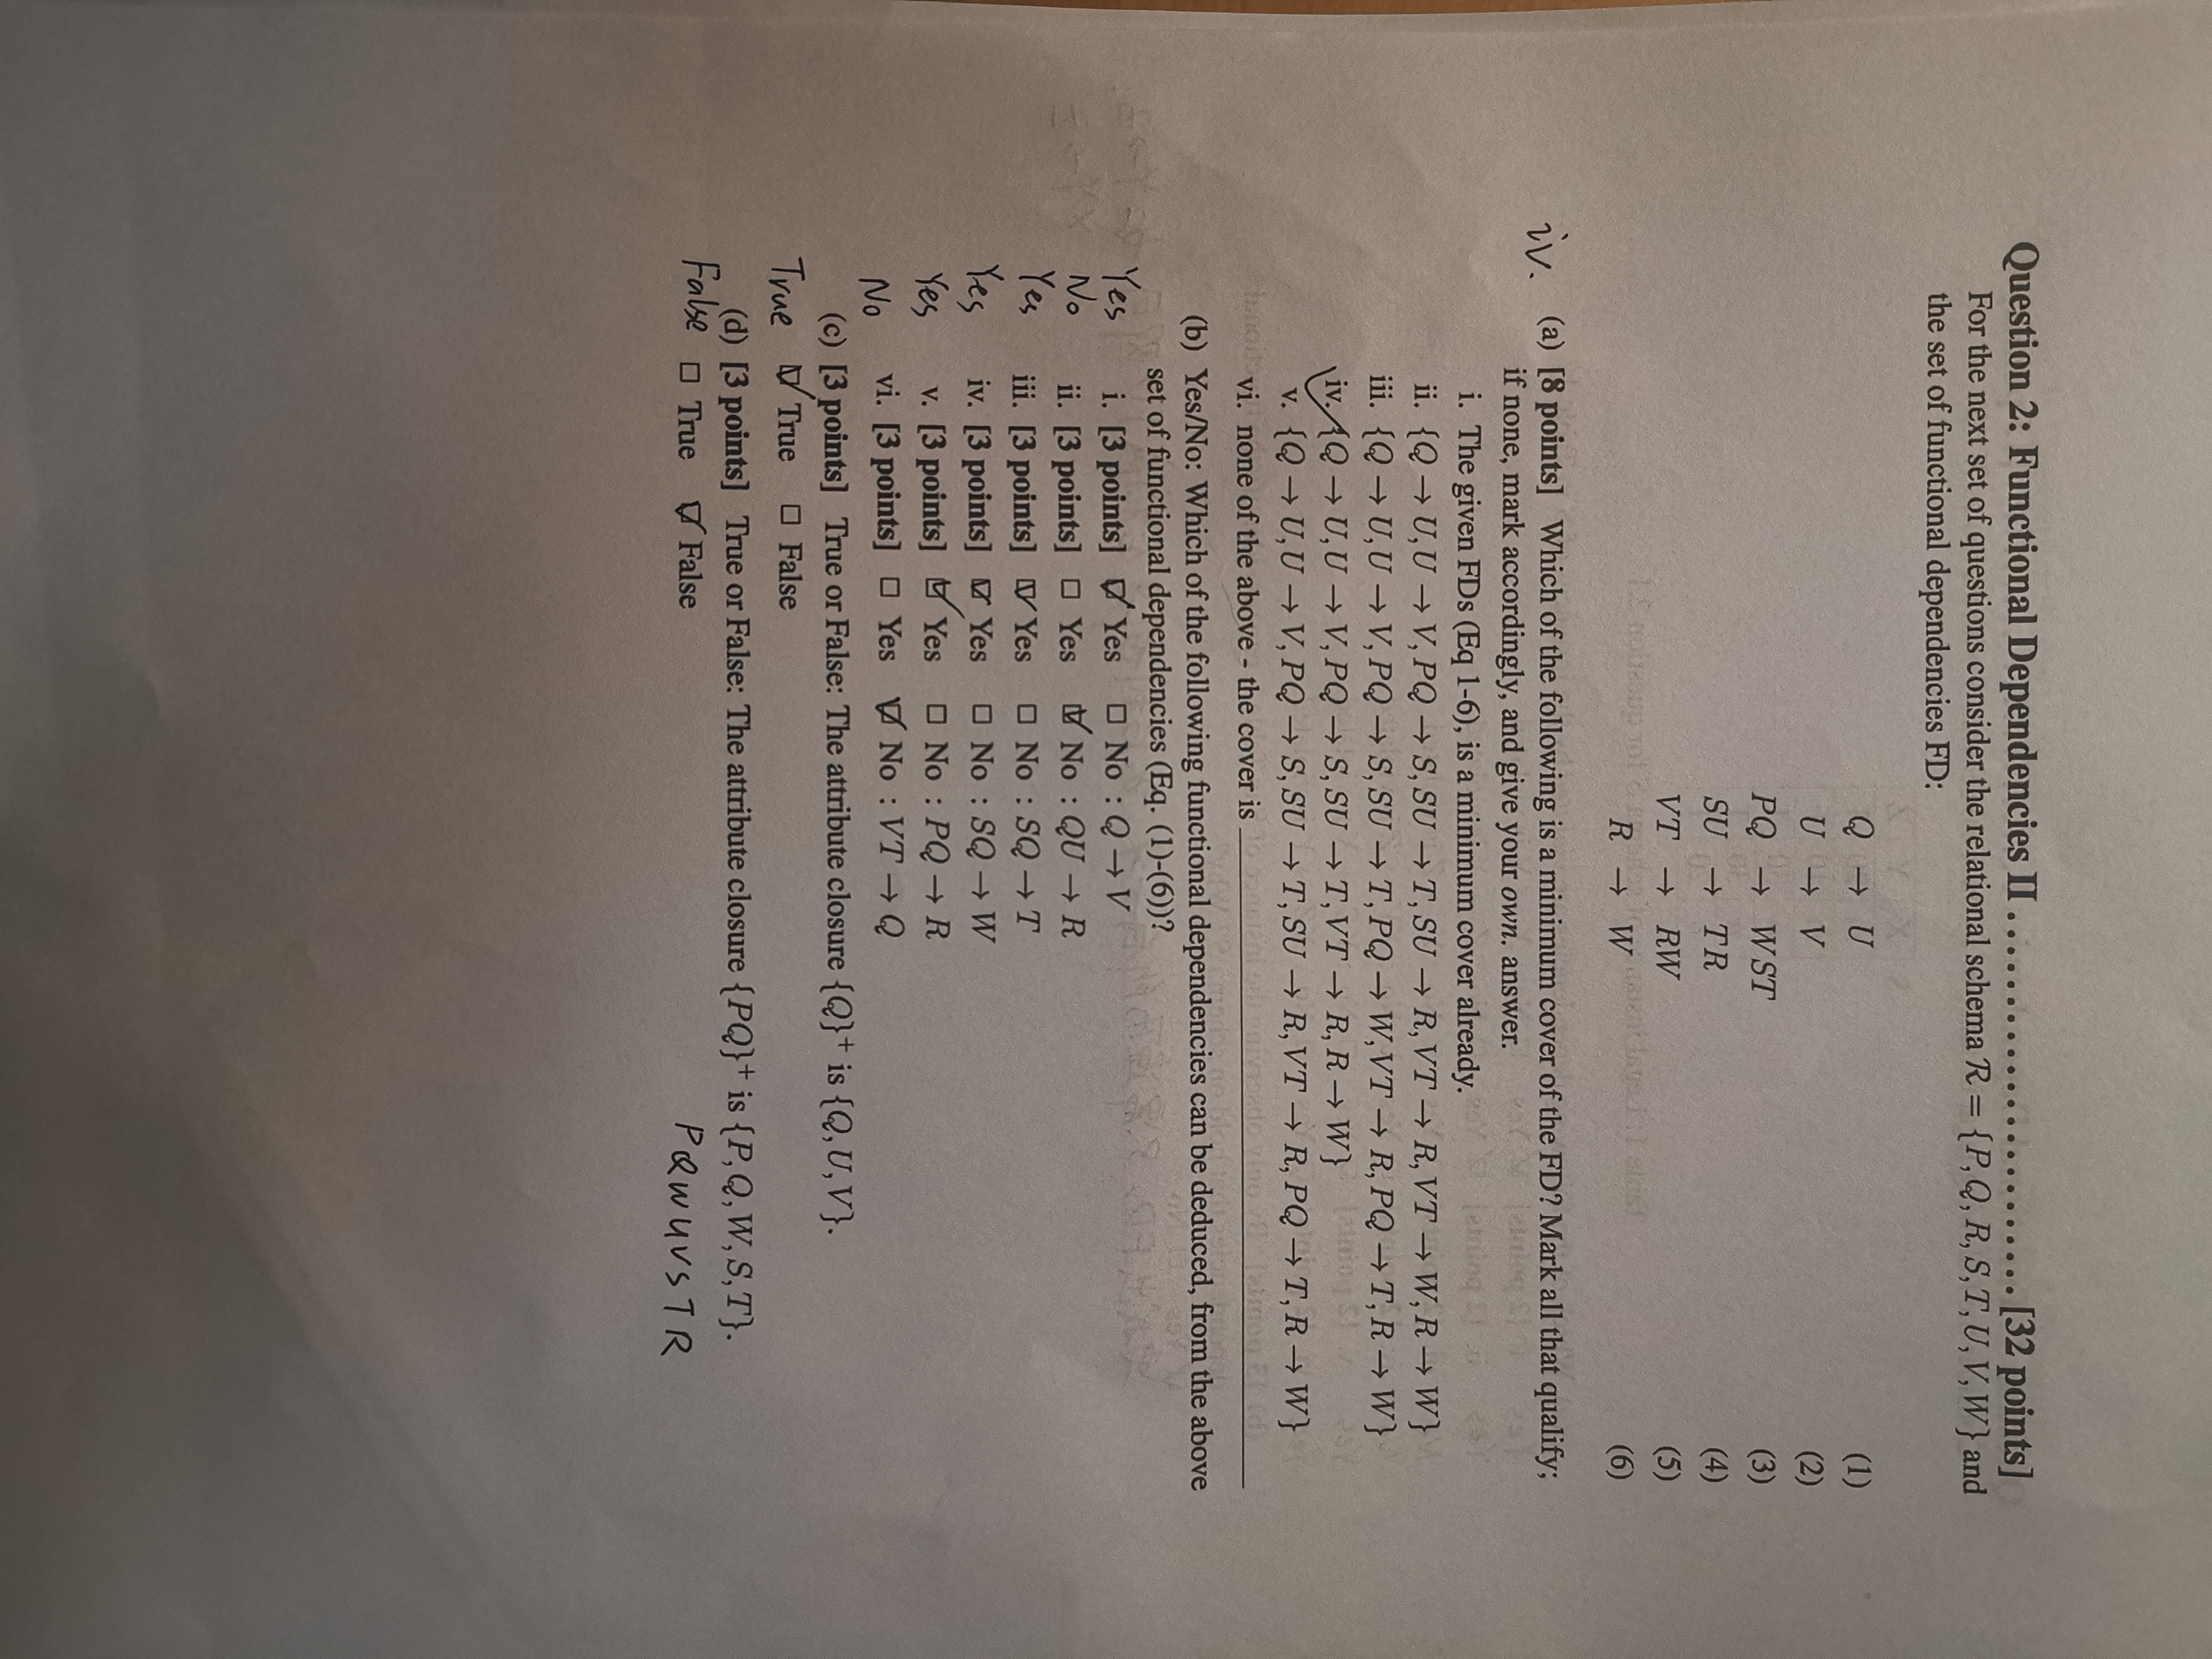 Question 2: Functional Dependencies II ........................ [32 points]
For the next set of questions consider the relational schema ℛ = {P, Q, R, S, T, U, V, W} and
the set of functional dependencies FD:
Q → U (1)
U → V (2)
PQ → WST (3)
SU → TR (4)
VT → RW (5)
R → W (6)
iv. (a) [8 points] Which of the following is a minimum cover of the FD? Mark all that qualify;
if none, mark accordingly, and give your own. answer.
i. The given FDs (Eq 1-6), is a minimum cover already.
ii. {Q → U, U → V, PQ → S, SU → T, SU → R, VT → R, VT → W, R → W}
iii. {Q → U, U → V, PQ → S, SU → T, PQ → W, VT → R, PQ → T, R → W}
iv. {Q → U, U → V, PQ → S, SU → T, VT → R, R → W}
v. {Q → U, U → V, PQ → S, SU → T, SU → R, VT → R, PQ → T, R → W}
vi. none of the above - the cover is
(b) Yes/No: Which of the following functional dependencies can be deduced, from the above
set of functional dependencies (Eq. (1)-(6))?
Yes i. [3 points] ☑ Yes □ No : Q → V
No ii. [3 points] □ Yes ☑ No : QU → R
Yes iii. [3 points] ☑ Yes □ No : SQ → T
Yes iv. [3 points] ☑ Yes □ No : SQ → W
Yes v. [3 points] ☑ Yes □ No : PQ → R
No vi. [3 points] □ Yes ☑ No : VT → Q
(c) [3 points] True or False: The attribute closure {Q}⁺ is {Q, U, V}.
True ☑ True □ False
(d) [3 points] True or False: The attribute closure {PQ}⁺ is {P, Q, W, S, T}.
False □ True ☑ False
PQWUVSTR